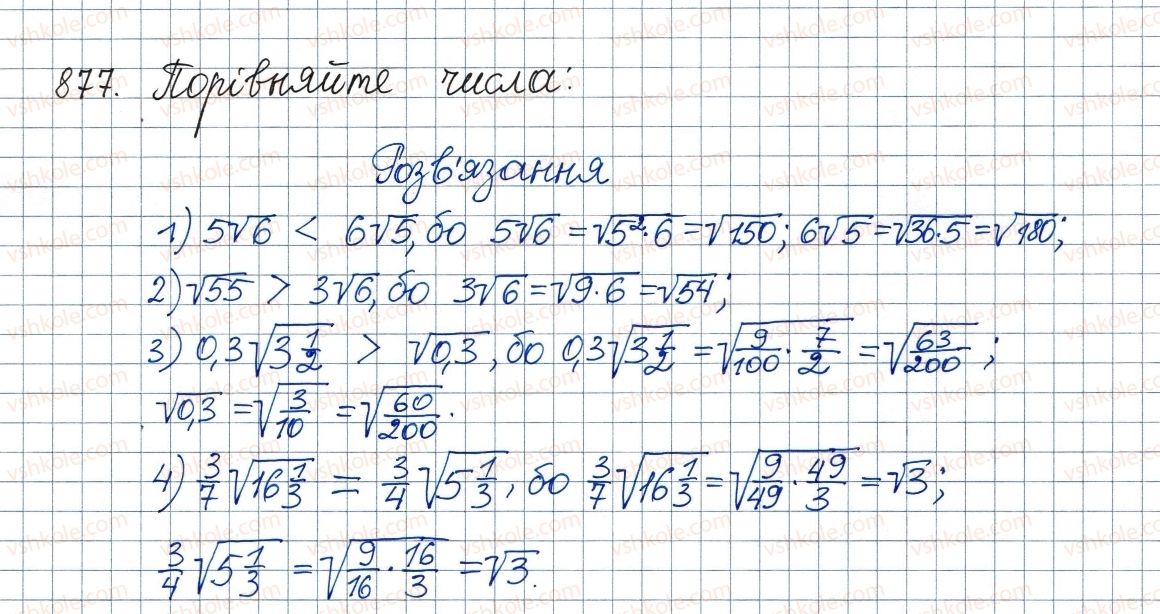 877. Порівняйте числа:
Розв'язання
1) 5√6 < 6√5, бо 5√6 = √(5²·6) = √150; 6√5 = √(36·5) = √180;
2) √55 > 3√6, бо 3√6 = √(9·6) = √54;
3) 0,3√(3 1/2) > √0,3, бо 0,3√(3 1/2) = √(9/100 · 7/2) = √(63/200);
√0,3 = √(3/10) = √(60/200).
4) 3/7 √(16 1/3) = 3/4 √(5 1/3), бо 3/7 √(16 1/3) = √(9/49 · 49/3) = √3;
3/4 √(5 1/3) = √(9/16 · 16/3) = √3.
vshkole.com